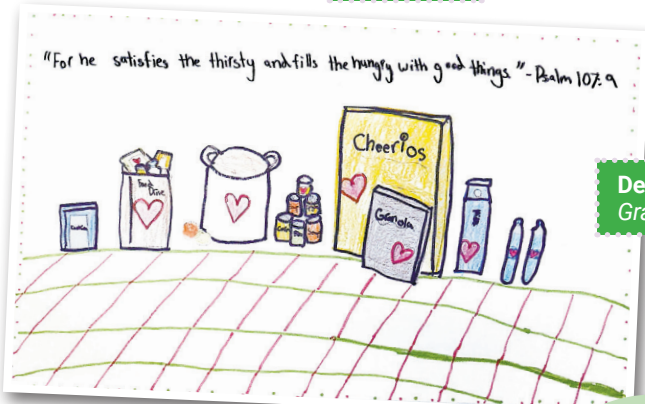 "For he satisfies the thirsty and fills the hungry with good things." - Psalm 107:9
Cheerios
Food
Drive
Granola
De
Gra